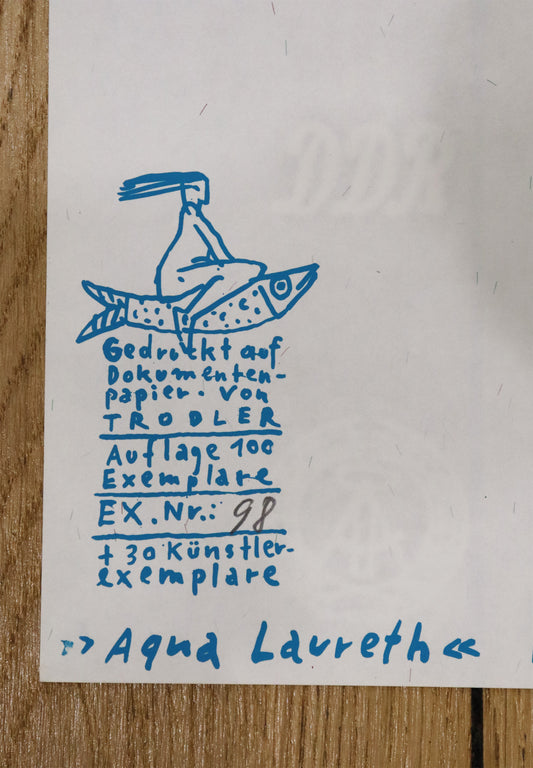 Gedruckt auf
Dokumenten-
papier. von
TRODLER
Auflage 100
Exemplare
EX. Nr.: 98
+ 30 Künstler-
exemplare
»Aqua Laureth«